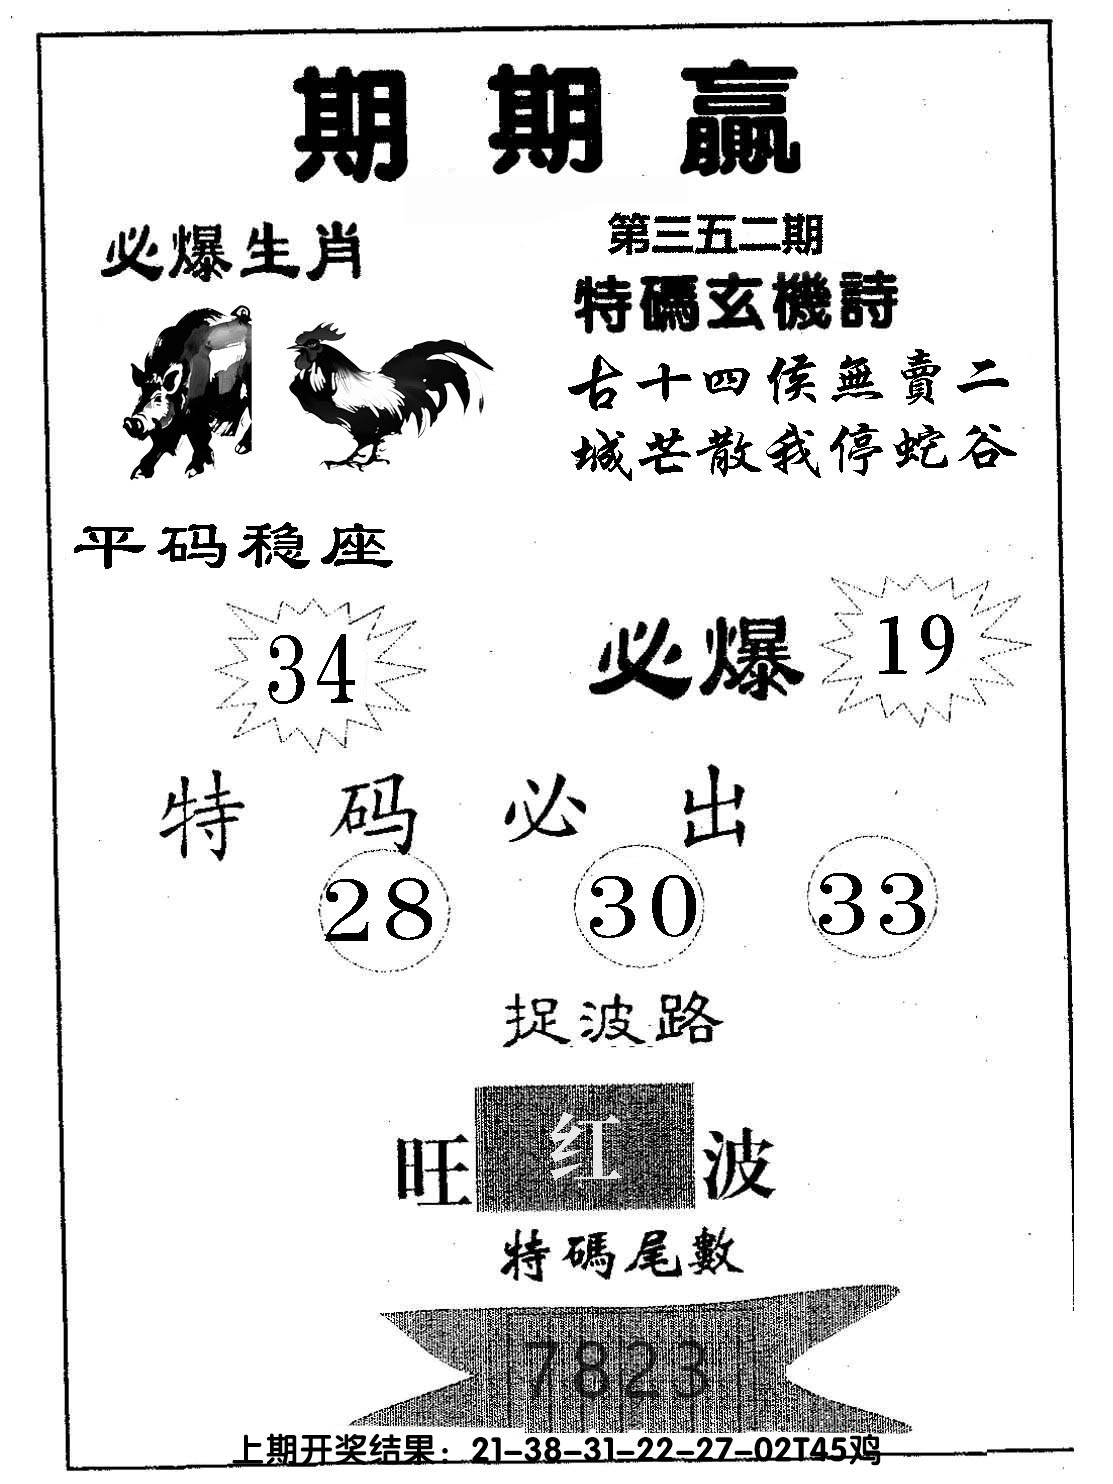 期期赢
必爆生肖
第三五二期
特碼玄機詩
古十四侯無賣二
城芒散我停蛇谷
平码稳座
34
必爆 19
特码必出
28 30 33
捉波路
旺红波
特碼尾數
7823
上期开奖结果：21-38-31-22-27-02T45鸡